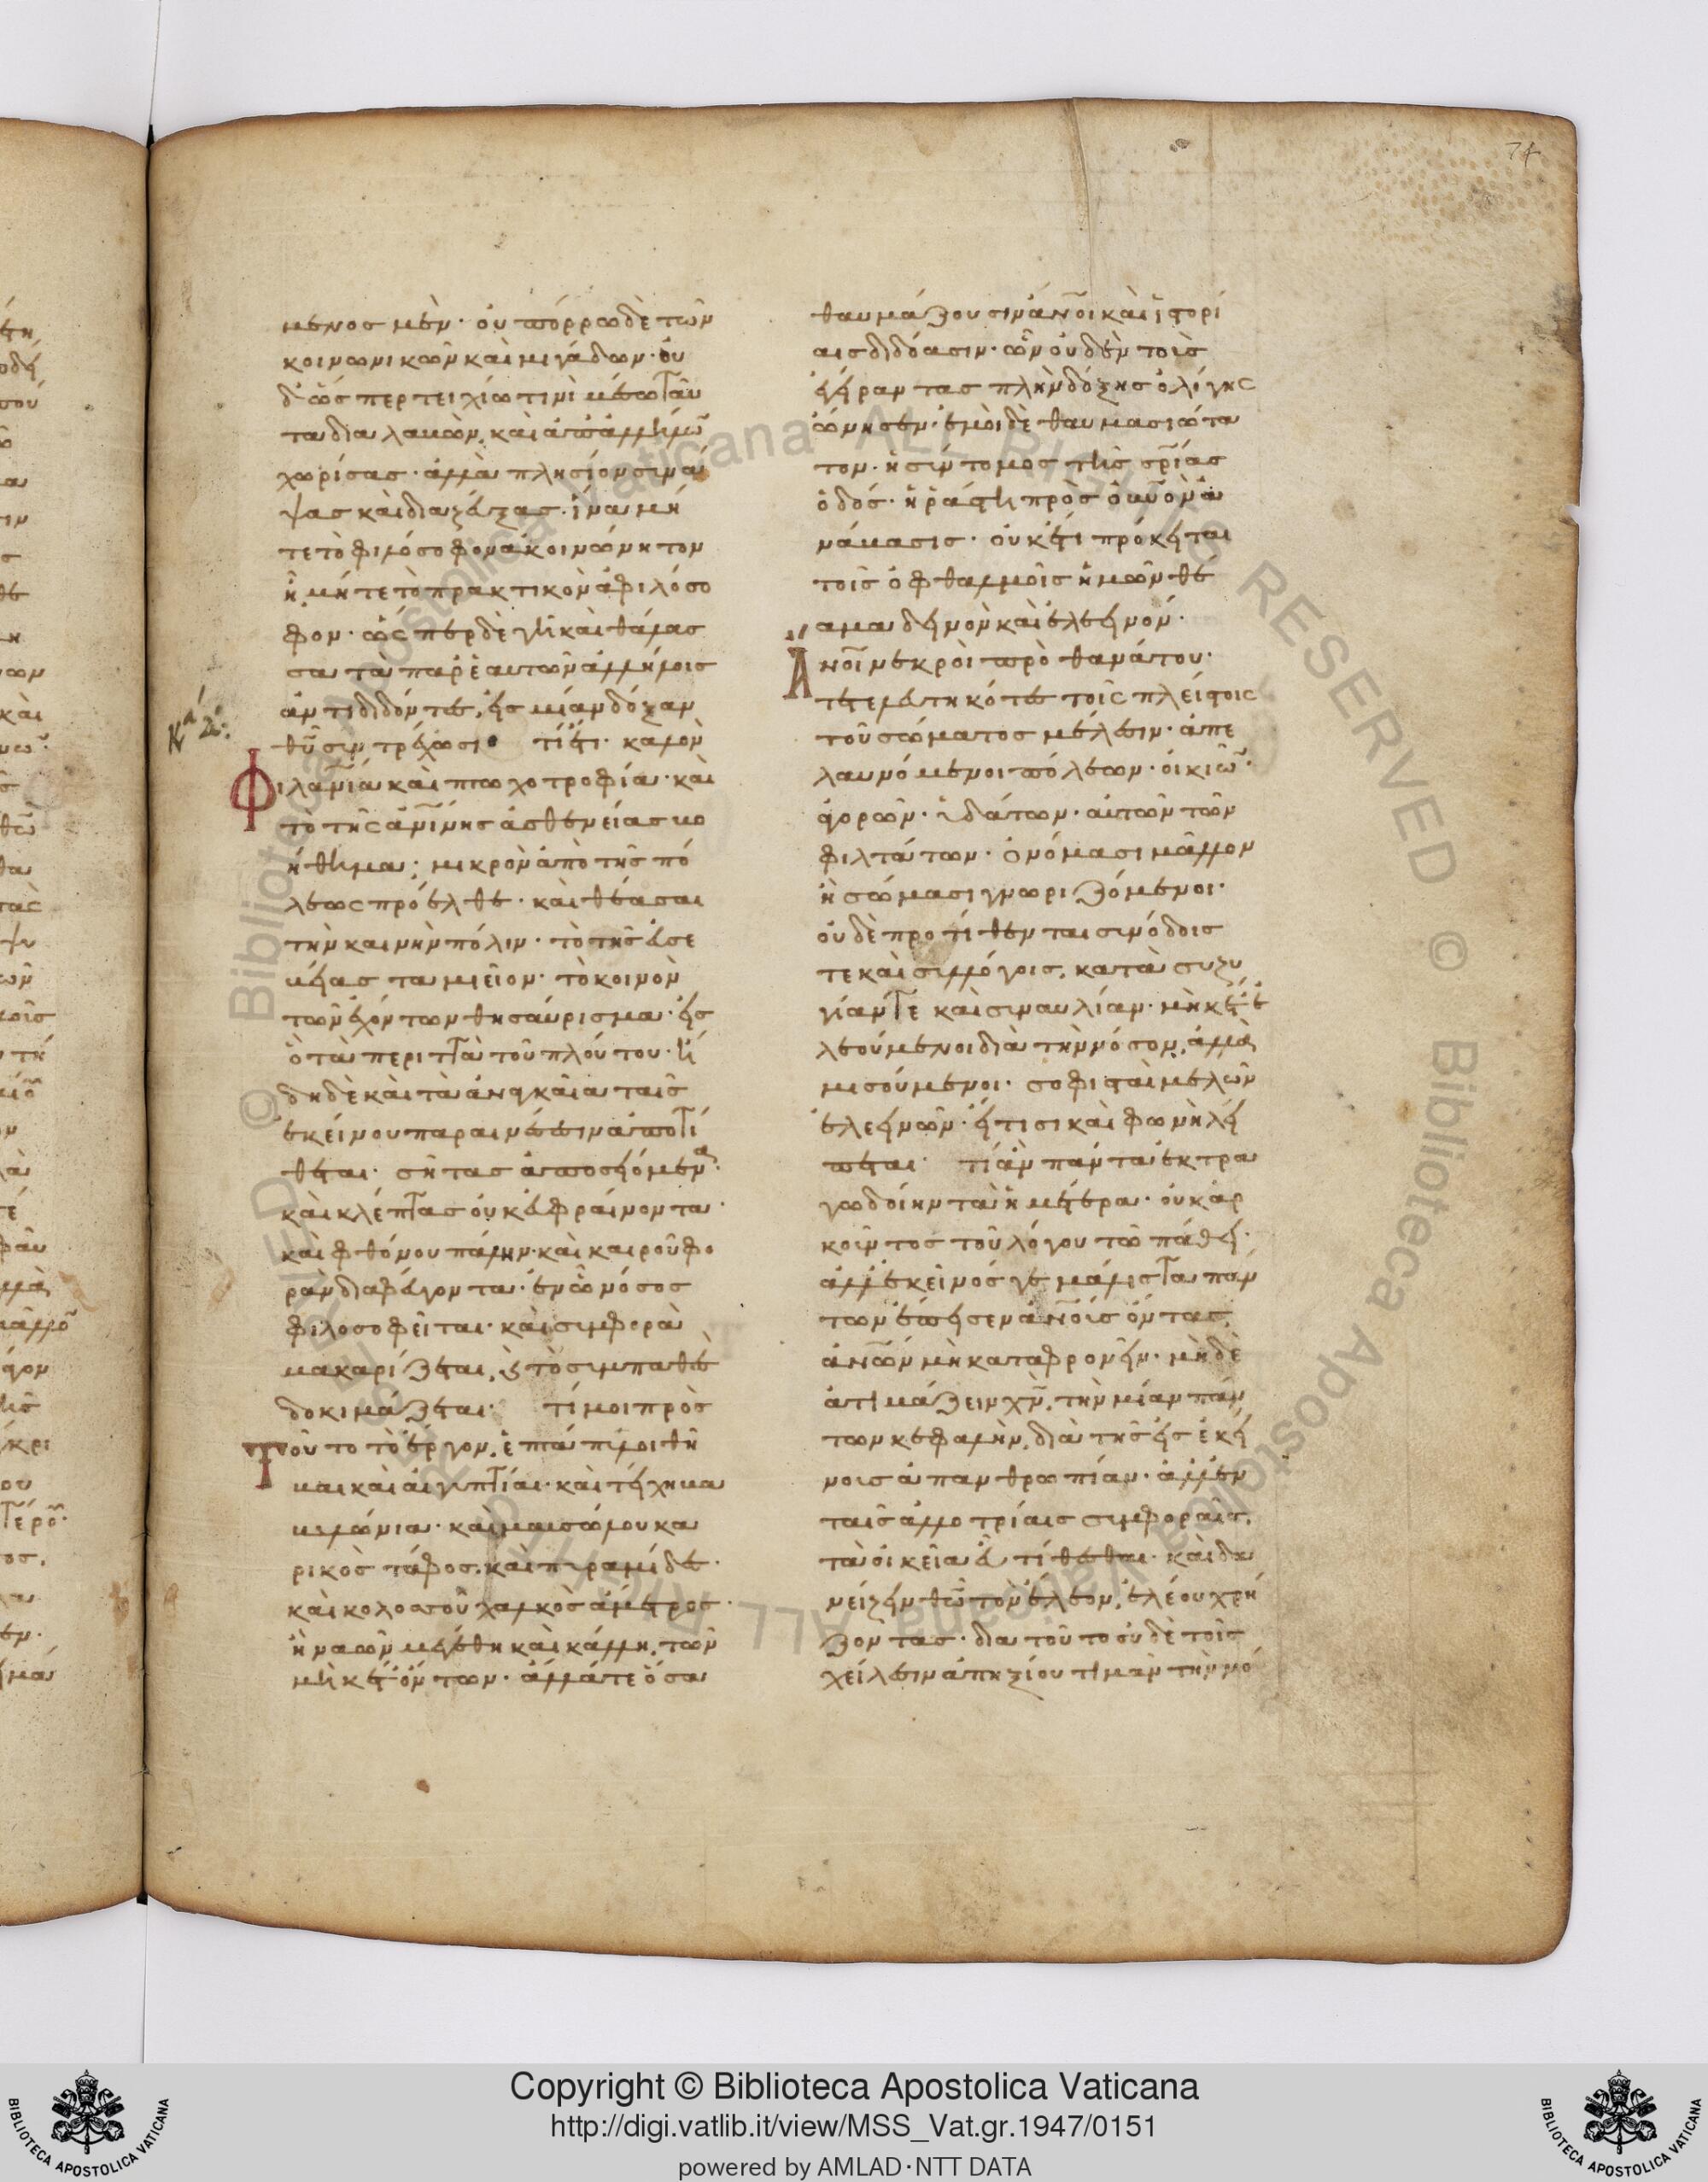 74
μενος μεν· οὐ πόρρω δὲ τῶν
κοινωνικῶν καὶ μιγάδων· οὐ
δ' ὥσπερ τειχίω τινὶ μέσω ταῦ
τα διαλαβὼν, καὶ ἀπ' ἀλλήλω̅
χωρίσας· ἀλλὰ πλησίον συνά
ψας καὶ διαζεύξας· ἵνα μή
τε τὸ φιλόσοφον ἀκοινώνητον
ἦ, μήτε τὸ πρακτικὸν ἀφιλόσο
φον· ὥσπερ δὲ γῆ καὶ θάλασ
σα τὰ παρ' ἑαυτῶν ἀλλήλοις
ἀντιδιδόντες, εἰς μίαν δόξαν
θῦ συντρέχωσι· τί ἔτι· καλὸν
Φιλανία καὶ πτωχοτροφία· καὶ
τὸ τῆς ἀνίνης ἀσθενείας βο
ήθημα; μικρὸν ἀπὸ τῆς πό
λεως πρόελθε· καὶ θέασαι
τὴν καινὴν πόλιν· τὸ τῆς εὐσε
βείας ταμιεῖον· τὸ κοινὸν
τῶν ἐχόντων θησαύρισμα· εἰς
ὃ τὰ περιττὰ τοῦ πλούτου· ἤ
δη δὲ καὶ τὰ ἀναγκαῖα ταῖς
ἐκείνου παραινέσεσιν ἀποτί
θεται· σῆτας ἀποσειόμενα·
καὶ κλέπτας οὐκ εὐφραίνοντα·
καὶ φθόνου πάλην· καὶ καιροῦ φο
ρὰν διαφεύγοντα· ἐν ὧ νόσος
φιλοσοφεῖται· καὶ συμφορὰ
μακαρίζεται, καὶ τὸ συμπαθὲς
δοκιμάζεται· τί μοι πρὸς
Τοῦτο τὸ ἔργον, ἑπτάπυλοι θῆ
βαι καὶ αἰγύπτιαι· καὶ τείχη βα
βυλώνια· καὶ μαυσώλου κα
ρικὸς τάφος, καὶ πυραμίδες·
καὶ κολοσσοῦ χαλκὸς ἄμετρος·
ἢ ναῶν μεγέθη καὶ κάλλη, τῶν
μηκέτ' ὄντων· ἄλλά τε ὅσα
θαυμάζουσιν ἄνοι καὶ ἱστορί
αις διδόασιν· ὧν οὐδὲν τοῖς
ἐγείραντας πλὴν δόξης ὀλίγης
ὤνησεν· ἐμοὶ δὲ θαυμασιώτα
τον· ἡ σύντομος τῆς σρίας
ὁδός· ἡ ράστη πρὸς οὐνὸν ἀ
νάβασις· οὐκέτι πρόκειται
τοῖς ὀφθαλμοῖς ἡμῶν θέ
αμα δεινὸν καὶ ἐλεεινόν·
Ἄνοι νεκροὶ πρὸ θανάτου·
τετελευτηκότες τοῖς πλείστοις
τοῦ σώματος μέλεσιν· ἀπε
λαυνόμενοι πόλεων· οἰκιῶ̅·
ἀγορῶν· ὑδάτων· αὐτῶν τῶν
φιλτάτων· ὀνόμασι μᾶλλον
ἢ σώμασι γνωριζόμενοι·
οὐδὲ προτίθενται συνόδοις
τε καὶ συλλόγοις, κατὰ συζυ
γίαν τε καὶ συναυλίαν· μηκέτ' ἐ
λεούμενοι διὰ τὴν νόσον, ἀλλὰ
μισούμενοι· σοφισταὶ μελῶν
ἐλεεινῶν· εἴ τισι καὶ φωνὴ λεί
πεται· τί ἂν πάντα ἐκτρα
γωδοίην τὰ ἡμέτερα· οὐκ ἀρ
κοῦντος τοῦ λόγου τῶ πάθει·
ἀλλ' ἐκεῖνός γε μάλιστα πάν
των ἔπεισεν ἀνοις ὄντας,
ἀνων μὴ καταφρονεῖν· μηδὲ
ἀτιμάζειν χν, τὴν μίαν πάν
των κεφαλὴν, διὰ τῆς εἰς ἐκεί
νοις ἀπανθρωπίαν· ἀλλ' ἐν
ταῖς ἀλλοτρίαις συμφοραῖς,
τὰ οἰκεῖα εὖ τίθεσθαι· καὶ δα
νείζειν θῶ τὸν ἔλεον, ἐλέου χρή
ζοντας· διὰ τοῦτο οὐδὲ τοῖς
χείλεσιν ἀπηξίου τιμᾶν τὴν νό
Copyright © Biblioteca Apostolica Vaticana
http://digi.vatlib.it/view/MSS_Vat.gr.1947/0151
powered by AMLAD·NTT DATA